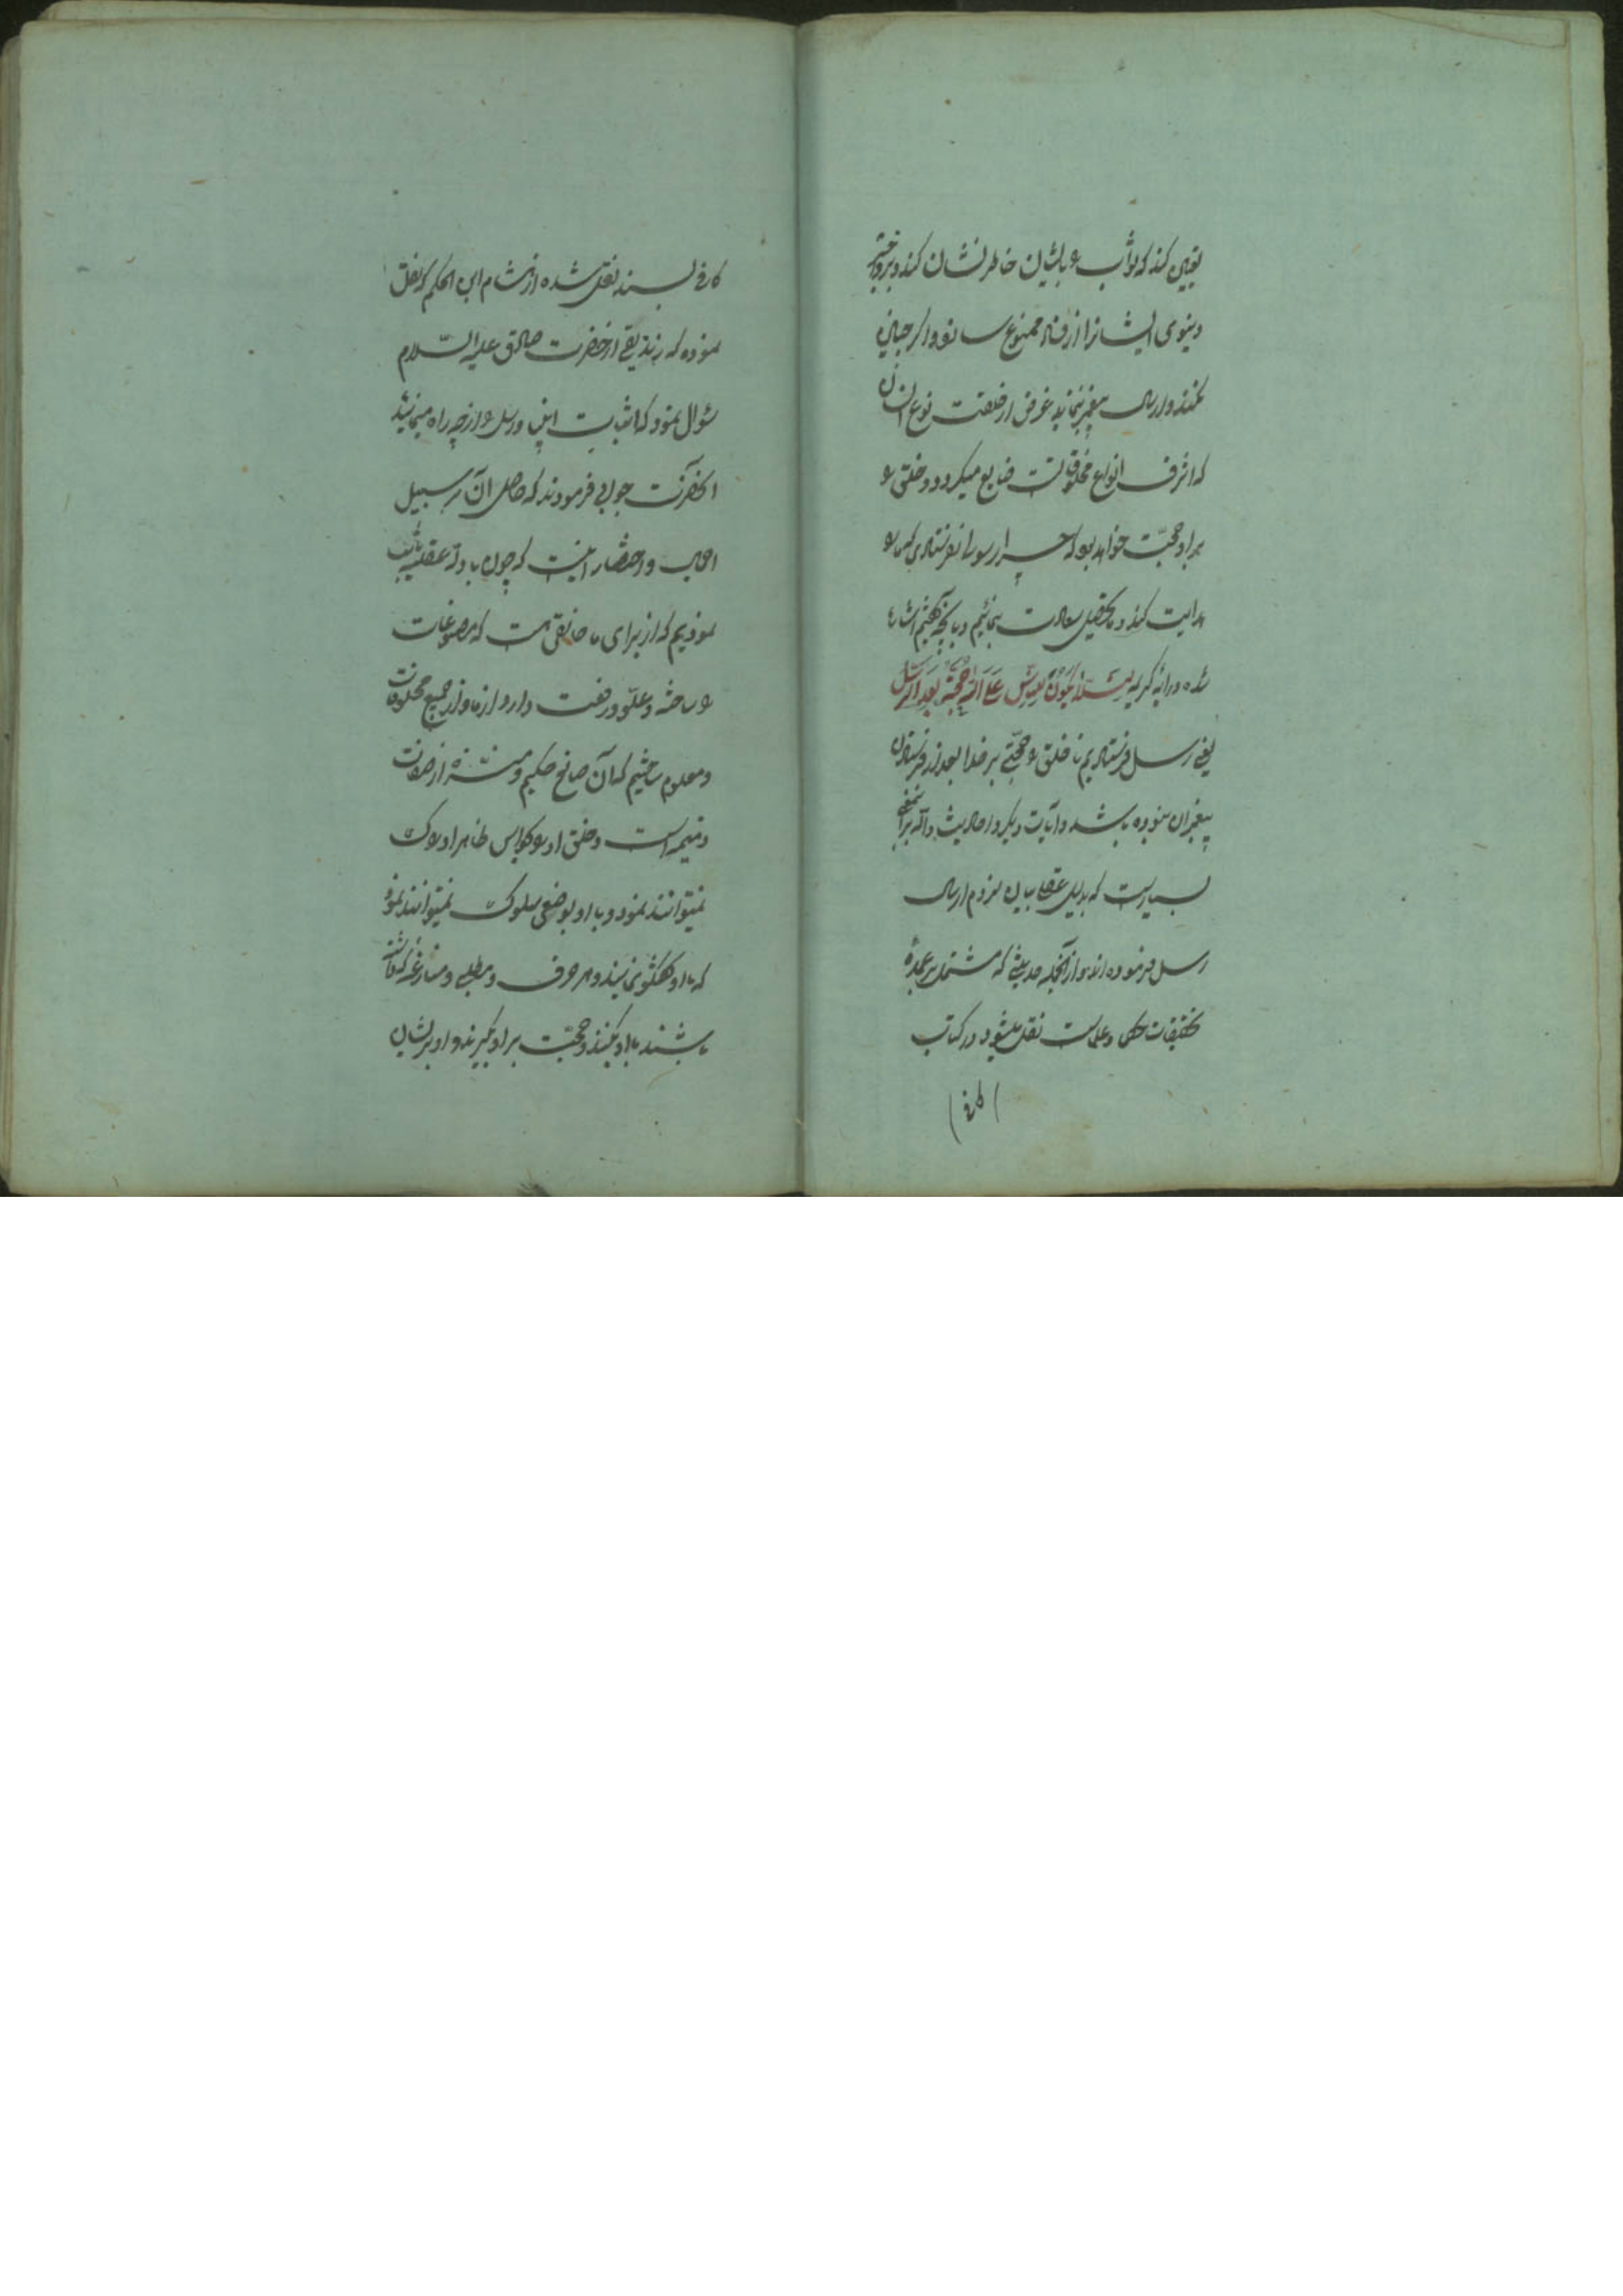 تعیین کند که ثواب را بایشان خاطرنشان کند و بزواجر
دنیوی ایشانرا از فساد ممنوع سازد و اگر چنین
نکند و ارسال پیغمبر ننماید غرض از خلقت نوع انسان
که اشرف انواع مخلوقاتست ضایع میگردد و خلق را
بر او حجّت خواهد بود که چرا رسولی نفرستادی که ما را
هدایت کند و تحصیل سعادت بنمائیم و بآنچه گفتیم اشاره
شده در آیه کریمه لِئَلّا یَکُونَ لِلنّاسِ عَلَی اللهِ حُجَّةٌ بَعدَ الرُّسُل
یعنی رسل فرستادیم تا خلق را حجّتی بر خدا بعد از فرستادن
پیغمبران نبوده باشد و آیات دیگر و احادیث دالّه بر این معنی
بسیار است که بدلیل عقلی بیان لزوم ارسال
رسل فرموده‌اند و از آنجمله حدیثی که مشتمل بر عمدهٔ
تحقیقات حکما و علماست نقل میشود در کتاب
(کافی)
کافی بسند نقل شده از هشام ابن الحکم که نقل
نموده که زندیقی از حضرت صادق علیه السّلام
سؤال نمود که اثبات انبیا و رسل را از چه راه مینمائید
آنحضرت جوابی فرمودند که حاصل آن بر سبیل
اجمال و اختصار اینست که چون بادلّهٔ عقلیه ثابت
نمودیم که از برای ما خالقی هست که مصنوعات
را ساخته و علوّ و رفعت دارد از ما و از جمیع مخلوقات
و معلوم ساختیم که آن صانع حکیم و منزّه از صفات
ذمیمه است و خلق او را بحواس ظاهر ادراک
نمیتوانند نمود و با او بوضعی سلوک نمیتوانند نمود
که با او گفتگو نمایند و هر حرف و مطلبی و منازعه که داشته
باشند با او بکنند و حجّت بر او بگیرند و او بر ایشان